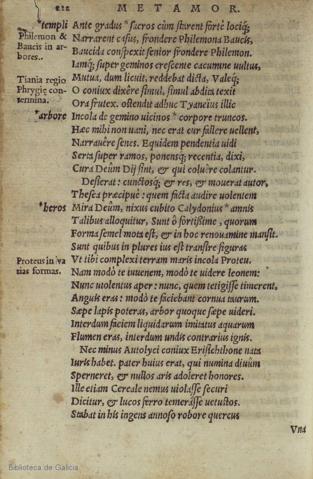 212 METAMOR.
*templi Ante gradus " sacros cùm starent fortè locíq;
Philemon & Narrarent casus, frondere Philemona Baucis,
Baucis in ar- Baucida conspexit senior frondere Philemon.
bores.. Iamq; super geminos crescente cacumine uultus,
Mutua, dum licuit, reddebat dicta, Valeq;
Tiania regio O coniux dixêre simul, simul abdita texit
Phrygię con- Ora frutex. ostendit adhuc Tyaneius illic
termina.
*arbore Incola de gemino uicinos " corpore truncos.
Hæc mihi non uani, nec erat cur fallere uellent,
Narrauêre senes. Equidem pendentia uidi
Serta super ramos, ponensq; recentia, dixi,
Cura Deûm Dij sint, & qui coluêre colantur.
Desierat: cunctosq; & res, & mouerat autor,
Thesea præcipuè: quem facta audire uolentem
*heros Mira Deûm, nixus cubito Calydonius " amnis
Talibus alloquitur, Sunt ô fortißime, quorum
Forma semel mota est, & in hoc renouamine mansit.
Sunt quibus in plures ius est transire figuras
Proteus in va Vt tibi complexi terram maris incola Proteu.
tias formas. Nam modò te iuuenem, modò te uidere leonem:
Nunc uiolentus aper: nunc, quem tetigisse timerent,
Anguis eras: modò te faciebant cornua taurum.
Sæpe lapis poteras, arbor quoque sæpe uideri.
Interdum faciem liquidarum imitatus aquarum
Flumen eras, interdum undis contrarius ignis.
Nec minus Autolyci coniux Erisichthone nata
Iuris habet. pater huius erat, qui numina diuûm
Sperneret, & nullos aris adoleret honores.
Ille etiam Cereale nemus uiolasse securi
Dicitur, & lucos ferro temerasse uetustos.
Stabat in his ingens annoso robore quercus
Vna
Biblioteca de Galicia